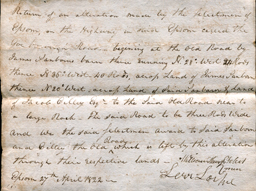 Return of an alteration made by the Selectmen of
Epsom on the Highway in said Epsom called the
Governor's Road – begining at the Old Road by
James Sanborns barn thence running N. 28° West 24 Rods
thence N. 35° West 40 Rods, across land of James Sanborn
thence N. 20° West across land of James Sanborn &
of Jacob Cilley Esqr to the Said Old Road near to
a large Rock. The said Road to be three Rods Wide
And we the said Selectmen award to said Sanborn
and Cilley the old Road which is left by this alteration
through their respective lands –
Epsom 27th April 1822